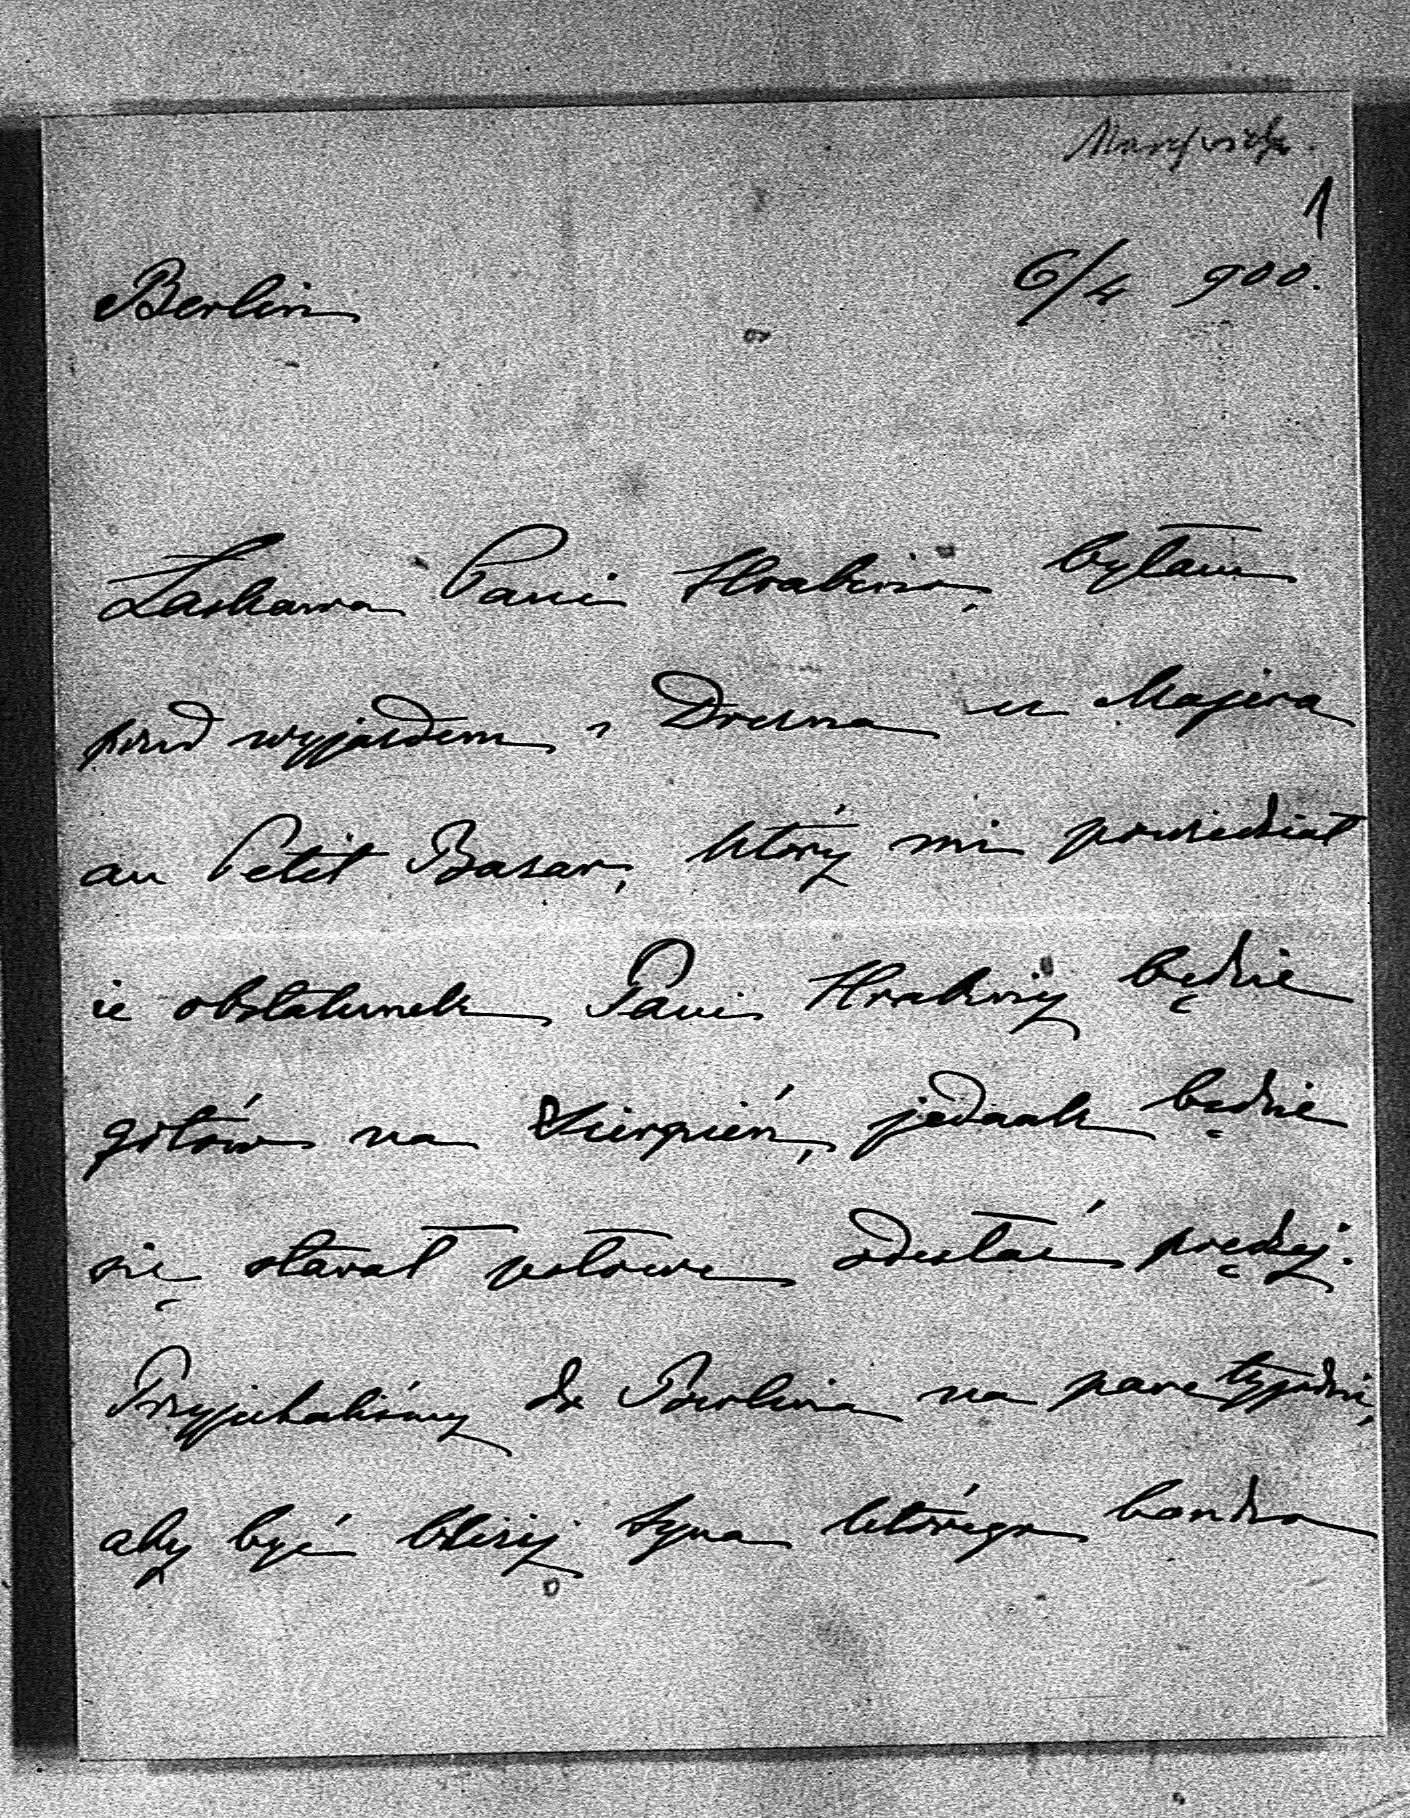 1
Berlin 6/4 900.
Łaskawa Pani Hrabino, byłam
przed wyjazdem z Drezna u Majera
au Petit Bazar, który mi powiedział
że obstalunek Pani Hrabiny będzie
gotów na Sierpień, jednak będzie
się starał gotowe odesłać prędzej.
Przyjechaliśmy do Berlina na parę tygodni,
aby być bliżej syna którego bardzo